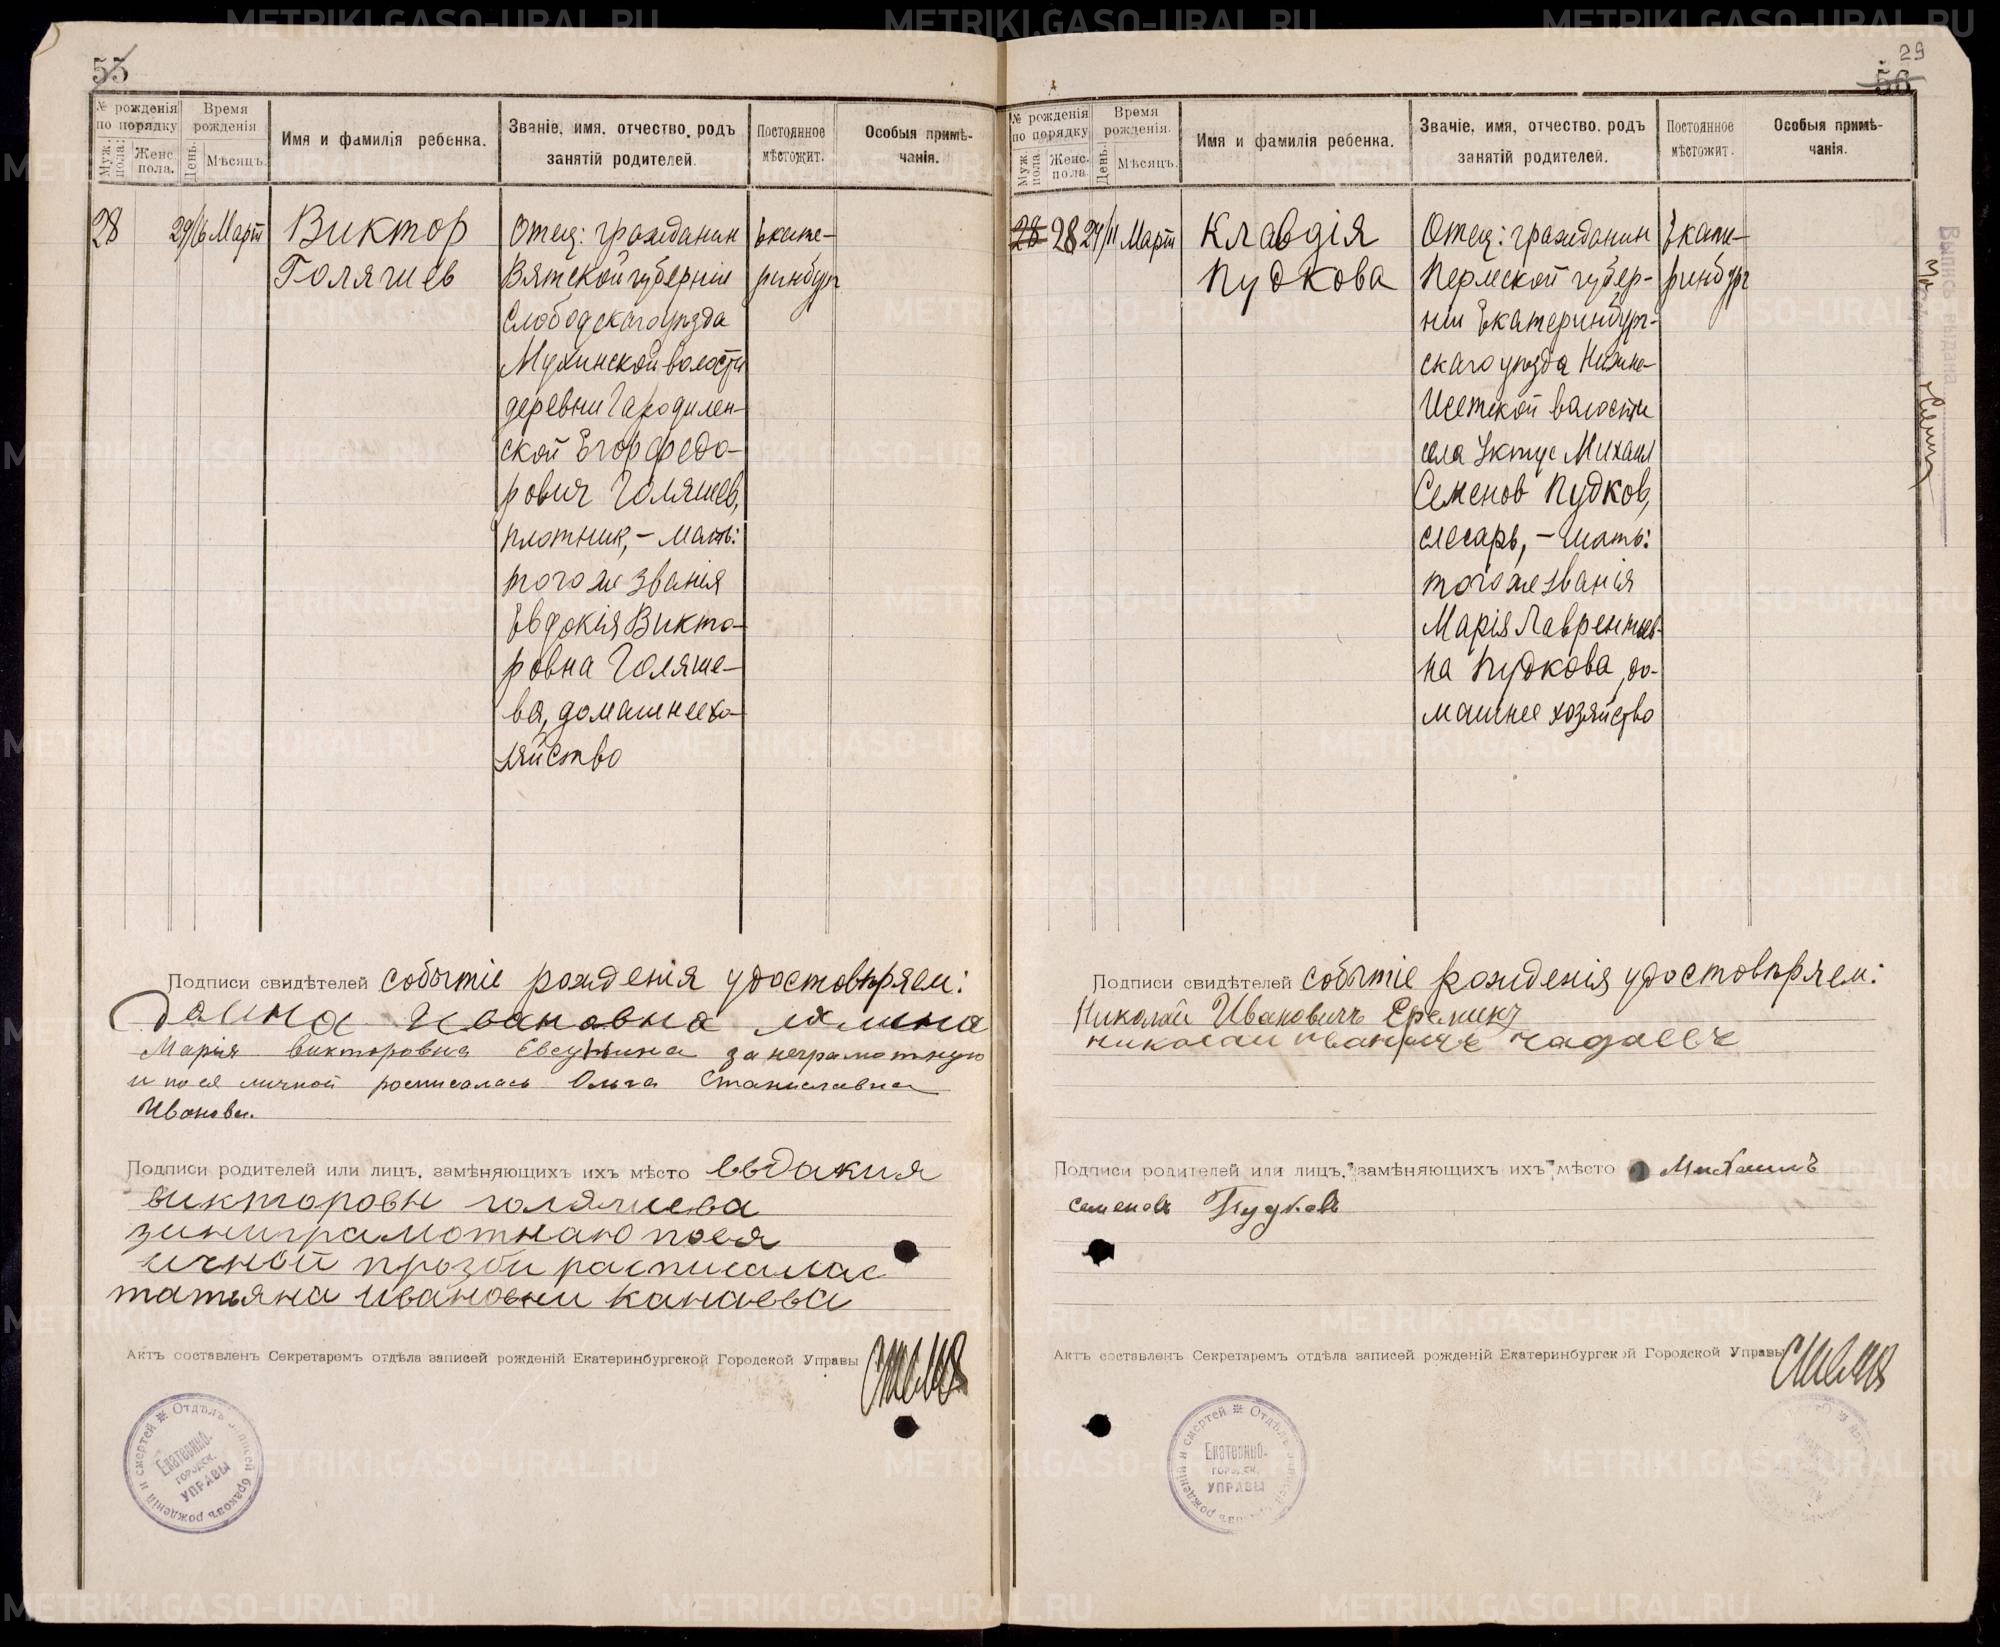 55
№ рожденія по порядку
Муж. пола.
Женс. пола.
Время рожденія
День.
Мѣсяцъ.
Имя и фамилія ребенка.
Званіе, имя, отчество, родъ
занятій родителей.
Постоянное
мѣстожит.
Особыя примѣ-
чанія.
28
29/16 Март
Виктор
Голячиев
Отец: гражданин
Вятской губерніи
Слободскаго уѣзда
Мухинской волости
деревни Гародилен-
ской Егор Федо-
рович Голяшев,
плотник, – мать:
того же званія
Евдокія Викто-
ровна Голяше-
ва, домашнее хо-
зяйство
Екате-
ринбург
Подписи свидѣтелей событіе рожденія удостовѣряем:
Ивановна
Марія викторовна за неграмотную
и по ея личной росписалась Ольга Станиславна
Иванова.
Подписи родителей или лицъ, замѣняющихъ ихъ мѣсто евдакия
викторовн голячиева
зинииграмотнаю поея
ичной прозби расписалас
татьяна ивановни канаева
Актъ составленъ Секретаремъ отдѣла записей рожденій Екатеринбургской Городской Управы
Отдѣлъ записей браковъ рожденій и смертей
Екатеринб.
городск.
УПРАВЫ
29
56
№ рожденія по порядку
Муж. пола.
Женс. пола.
Время рожденія.
День.
Мѣсяцъ.
Имя и фамилія ребенка.
Званіе, имя, отчество, родъ
занятій родителей.
Постоянное
мѣстожит.
Особыя примѣ-
чанія.
28 28 24/11 Март
Клавдія
Пудкова
Отец: гражданин
Пермской губер-
нии Екатеринбург-
скаго уѣзда Нижне-
Исетской волости
села Уктус Михаил
Семенов Пудков,
слесарь, – мать:
того же званія
Марія Лаврентьев-
на Пудкова, до-
машнее хозяйство
Екате-
ринбург
Выпись выдана
Подписи свидѣтелей событіе рожденія удостовѣряем:
Николай Ивановичъ Еремин
николаи ивановичъ чадаевъ
Подписи родителей или лицъ, замѣняющихъ ихъ мѣсто Михаилъ
семеновъ Пудковъ
Актъ составленъ Секретаремъ отдѣла записей рожденій Екатеринбургской Городской Управы
Отдѣлъ записей браковъ рожденій и смертей
Екатеринб.
городск.
УПРАВЫ
METRIKI.GASO-URAL.RU